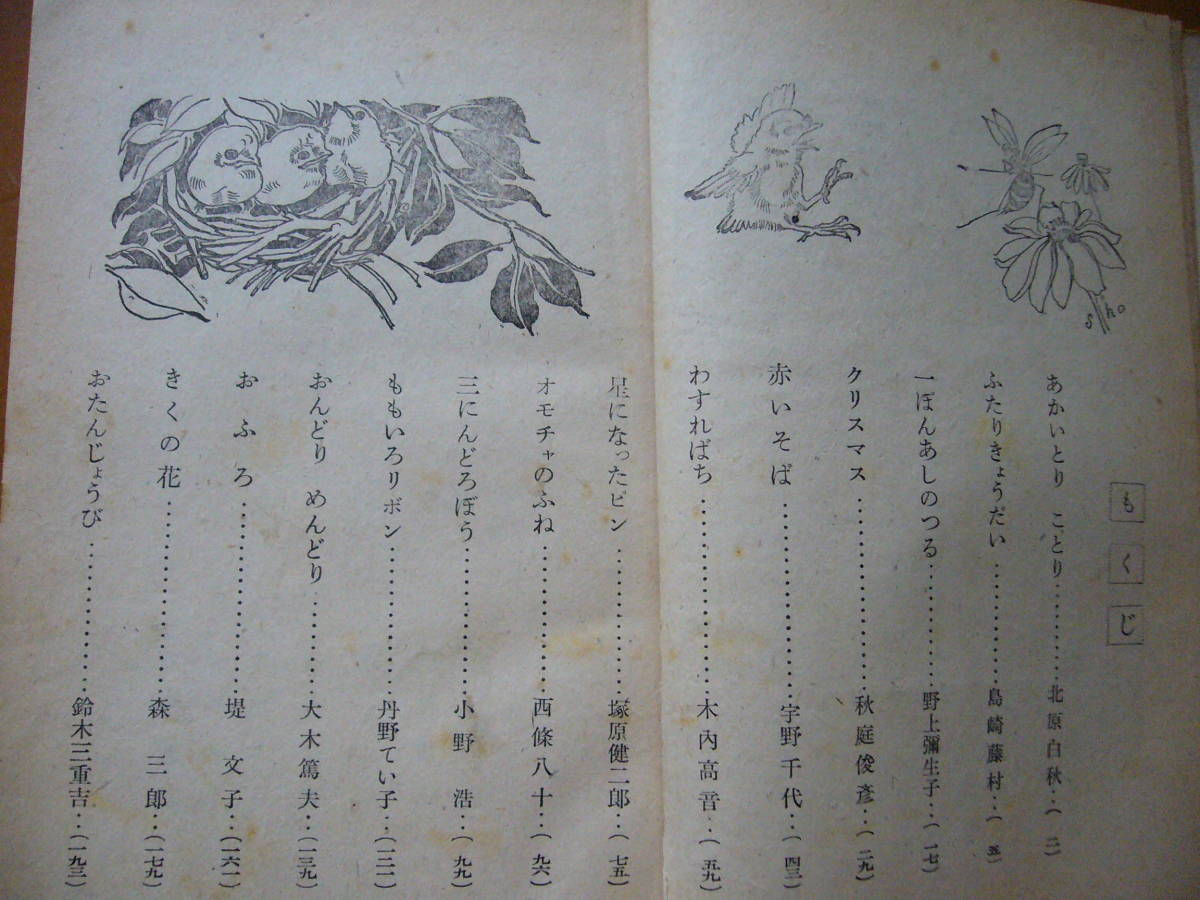 もくじ
あかいとり ことり………北原白秋‥(二)
ふたりきょうだい…………島崎藤村‥(五)
一ぽんあしのつる…………野上彌生子‥(一七)
クリスマス…………秋庭俊彦‥(二九)
赤いそば…………宇野千代‥(四三)
わすればち…………木內高音‥(五九)
星になったピン…………塚原健二郎‥(七五)
オモチャのふね…………西條八十‥(九六)
三にんどろぼう…………小野 浩‥(九九)
ももいろリボン…………丹野てい子‥(一二一)
おんどり めんどり………大木篤夫‥(一三九)
おふろ…………堤 文子‥(一六一)
きくの花…………森 三郎‥(一七九)
おたんじょうび…………鈴木三重吉‥(一九三)
Sho